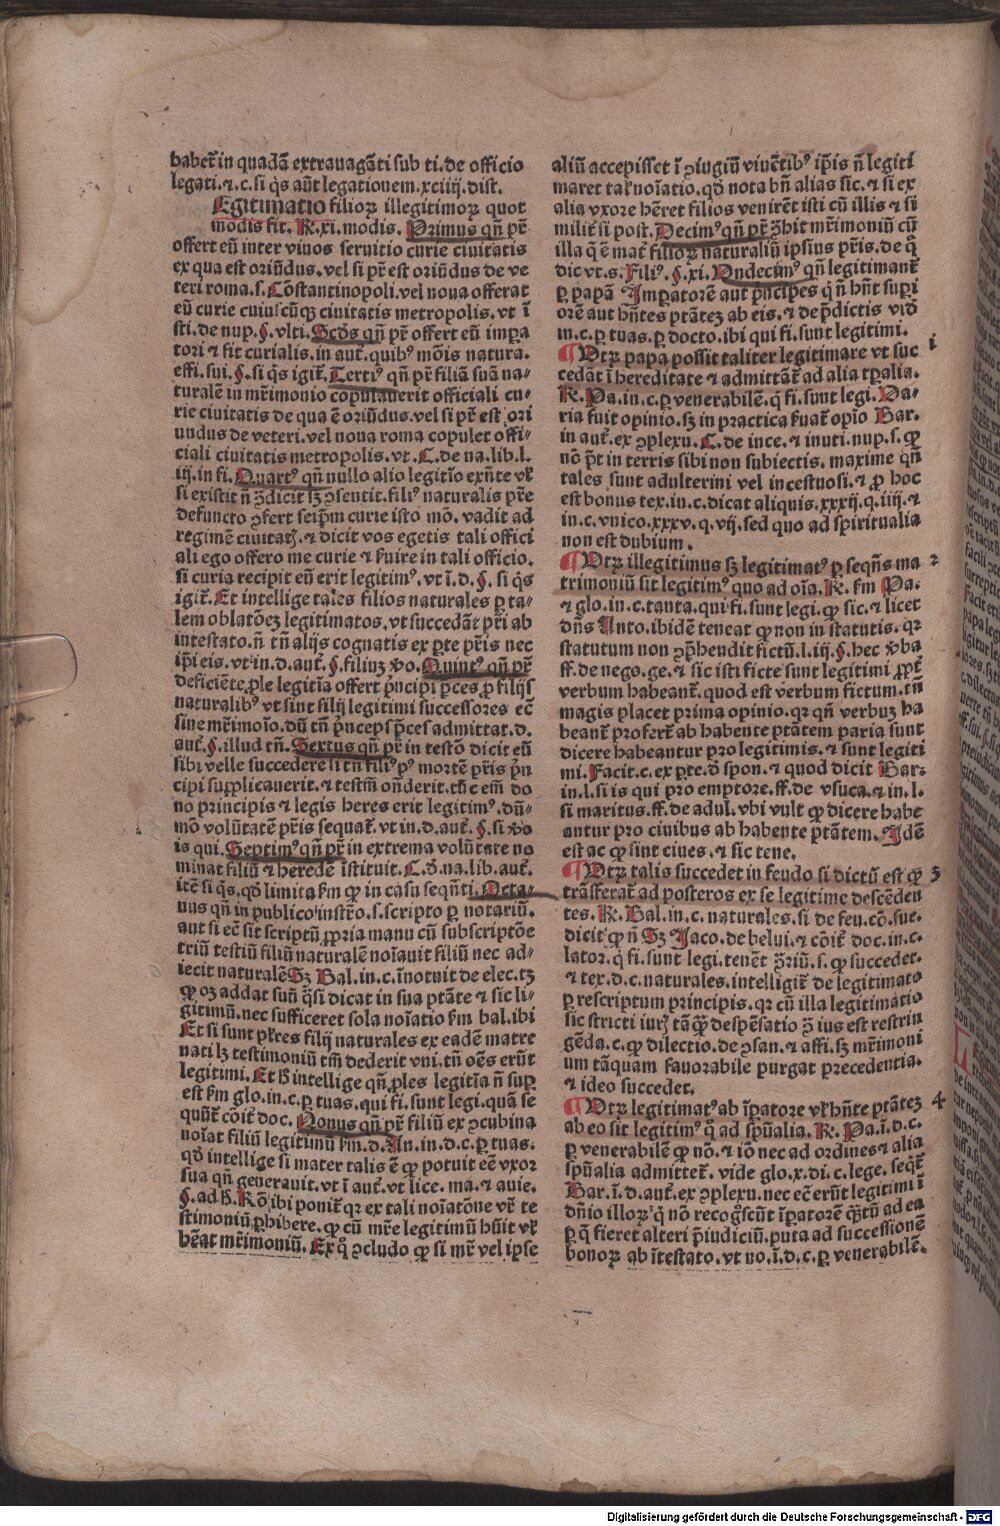 habet᷑ in quadã extrauagãti sub ti.de officio
legati.⁊.c.si q̃s aũt legationem.xciiij.dist.
Egitimatio filioꝝ illegitimoꝝ quot
modis fit. R̃.xi.modis. Primus qñ pr̃
offert eũ inter viuos seruitio curie ciuitatis
ex qua est oriũdus.vel si pr̃ est oriũdus de ve
teri roma.s.Cõstantinopoli.vel noua offerat
eũ curie cuiuscũqꝫ ciuitatis metropolis.vt ĩ
sti.de nup.§.vlti. Scd̃s qñ pr̃ offert eũ impa
tori ⁊ fit curialis.in aut̃.quibꝰ mõis natura.
effi.sui.§.si q̃s igit᷑. Tertiꝰ qñ pr̃ filiã suã na⸗
turalẽ in mr̃imonio copulauerit officiali cu⸗
rie ciuitatis de qua ẽ oriũdus.vel si pr̃ est ori
undus de veteri.vel noua roma copulet offi⸗
ciali ciuitatis metropolis.vt.C.de na.lib.l.
iij.in fi. Quartꝰ qñ nullo alio legitĩo exñte vl̃
si existit ñ ꝯ̃dicit sꝫ ꝯsentit.filiꝰ naturalis pr̃e
defuncto ꝯfert seip̃m curie isto mõ.vadit ad
regimẽ ciuitatꝭ.⁊ dicit vos egetis tali offici
ali ego offero me curie ⁊ s̃uire in tali officio.
si curia recipit eũ erit legitimꝰ.vt ĩ.d.§.si q̃s
igit᷑.Et intellige tales filios naturales ꝑ ta⸗
lem oblatõeꝫ legitimatos.vt succedãt pr̃i ab
intestato.ñ tñ alijs cognatis ex ꝑte pr̃is nec
ip̃i eis.vt in.d.aut̃.§.filiuꝫ ꝟo. Quintꝰ qñ pr̃
deficiẽte ꝓle legitĩa offert p̃ncipi p̃ces ꝓ filijs
naturalibꝰ vt sint filij legitimi successores eẽ
sine mr̃imoĩo.dũ tñ p̃nceps p̃ces admittat.d.
aut̃.§.illud tñ. Sextus qñ pr̃ in testõ dicit eũ
sibi velle succedere si tñ filiꝰ pꝰ mortẽ pr̃is p̃n
cipi supplicauerit.⁊ testm̃ oñderit.tũc em̃ do
no principis ⁊ legis heres erit legitimꝰ.dũ⸗
mõ volũtatẽ pr̃is sequat᷑.vt in.d.aut̃.§.si ꝟo
is qui. Septimꝰ qñ pr̃ in extrema volũtate no
minat filiũ ⁊ heredẽ ĩstituit.C.d̃.na.lib.aut̃.
itẽ si q̃s.qd̃ limita s̃m ꝙ in casu seqñti. Octa⸗
uus qñ in publico instr̃o.s.scripto ꝑ notariũ.
aut si eẽ sit scriptũ ꝓpria manu cũ subscriptõe
triũ testiũ filiũ naturalẽ noĩauit filiũ nec ad⸗
iecit naturalẽ Sꝫ Bal.in.c.ĩnotuit de elec.tꝫ
ꝙ oꝫ addat suũ q̃si dicat in sua ptãte ⁊ sic li⸗
gitimũ.nec sufficeret sola noĩatio s̃m bal.ibi
Et si sunt pl̃res filij naturales ex eadẽ matre
nati lꝫ testimoniũ tm̃ dederit vni.tñ oẽs erũt
legitimi.Et h̃ intellige qñ ꝓles legitĩa ñ suꝑ
est s̃m glo.in.c.ꝑ tuas.qui fi.sunt legi.quã se
quũt᷑ cõit᷑ doc. Nonus qñ pr̃ filiũ ex ꝯcubina
noĩat filiũ legitimũ s̃m.d.An.in.d.c.ꝑ tuas.
qd̃ intellige si mater talis ẽ ꝙ potuit eẽ vxor
sua qñ generauit.vt ĩ aut̃.vt lice.ma.⁊ auie.
§.ad h̃.Rõ ibi ponit᷑ qꝛ ex tali noĩatõne vr̃ te
stimoniũ ꝑhibere.ꝙ cũ mr̃e legitimũ hũit vl̃
hẽat mr̃imoniũ. Ex q̊ ꝯcludo ꝙ si mr̃ vel ipse
aliũ accepisset ĩ ꝯiugiũ viuẽtibꝰ ip̃is ñ legiti
maret tal̃ noĩatio.qd̃ nota bñ alias sic.⁊ si ex
alia vxore hẽret filios venirẽt isti cũ illis ⁊ si
milit᷑ si post. Decimꝰ qñ pr̃ ꝯ̃hit mr̃imoniũ cũ
illa q̃ ẽ mat᷑ filioꝝ naturaliũ ipsius pr̃is.de q̃
dic vt.s.Filiꝰ.§.xi. Undecimꝰ qñ legitimant᷑
ꝑ papã Imꝑatorẽ aut p̃ncipes q̃ ñ hñt supi
orẽ aut hñtes ptãteꝫ ab eis.⁊ de p̃dictis vid̃
in.c.ꝑ tuas.ꝑ docto.ibi qui fi.sunt legitimi.
¶ Utꝝ papa possit taliter legitimare vt suc
cedãt ĩ hereditate ⁊ admittãt᷑ ad alia tp̃alia. i
R̃.Pa.in.c.ꝑ venerabilẽ.q̃ fi.sunt legi.Va⸗
ria fuit opinio.sꝫ in practica s̃uat᷑ opĩo Bar.
in aut̃.ex ꝯplexu.C.de ince.⁊ inuti.nup.s.ꝙ
nõ pt̃ in terris sibi non subiectis.maxime qñ
tales sunt adulterini vel incestuosi.⁊ ꝓ hoc
est bonus tex.in.c.dicat aliquis.xxxij.q.iiij.⁊
in.c.vnico.xxxv.q.vij.sed quo ad spiritualia
non est dubium.
¶ Utꝝ illegitimus sꝫ legitimatꝰ ꝑ seqñs ma 2
trimoniũ sit legitimꝰ quo ad oĩa.R̃.s̃m Pa.
⁊ glo.in.c.tanta.qui fi.sunt legi.ꝙ sic.⁊ licet
dñs Anto.ibidẽ teneat ꝙ non in statutis.qꝛ
statutum non ꝯp̃hendit fictũ.l.iij.§.hec ꝟba
ff.de nego.ge.⁊ sic isti ficte sunt legitimi ꝓpt᷑
verbum habeant᷑.quod est verbum fictum.tñ
magis placet prima opinio.qꝛ qñ verbuꝫ ha
beant᷑ profert᷑ ab habente ptãtem paria sunt
dicere habeantur pro legitimis.⁊ sunt legiti
mi.Facit.c.ex ꝑte.d̃ spon.⁊ quod dicit Bar⸗
in.l.si is qui pro emptore.ff.de vsuca.⁊ in.l.
si maritus.ff.de adul.vbi vult ꝙ dicere habe
antur pro ciuibus ab habente ptãtem. Idẽ
est ac ꝙ sint ciues.⁊ sic tene.
¶ Utꝝ talis succedet in feudo si dictũ est ꝙ 3
trãsferat᷑ ad posteros ex se legitime descẽden
tes.R̃.Bal.in.c.naturales.si de feu.cõ.fue.
dicit ꝙ ñ Sꝫ Jaco.de belui.⁊ cõit᷑ doc.in.c.
lator.q̃ fi.sunt legi.tenẽt ꝯ̃riũ.s.ꝙ succedet.
⁊ tex.d.c.naturales.intelligit᷑ de legitimato
ꝑ rescriptum principis.qꝛ cũ illa legitimatio
sic stricti iurꝭ tãꝙ̃ despẽsatio ꝯ̃ ius est restrin
gẽda.c.ꝙ dilectio.de ꝯsan.⁊ affi.sꝫ mr̃imoni
um tãquam fauorabile purgat precedentia.
⁊ ideo succedet.
¶ Utꝝ legitimatꝰ ab ĩpatore vl̃ hñte ptãteꝫ 4
ab eo sit legitimꝰ q̊ ad sp̃ualia.R̃.Pa.ĩ.d.c.
ꝑ venerabilẽ ꝙ nõ.⁊ iõ nec ad ordines ⁊ alia
sp̃ualia admittet᷑.vide glo.x.di.c.lege.seqt᷑
Bar.ĩ.d.aut̃.ex ꝯplexu.nec eẽ erũt legitimi ĩ
dñio illoꝝ q̃ nõ recog̃scũt ĩpatorẽ q̃tũ ad ea
ꝑ q̃ fieret alteri p̃iudiciũ.puta ad successionẽ
bonoꝝ ab ĩtestato.vt no.ĩ.d.c.ꝑ venerabilẽ.
Digitalisierung gefördert durch die Deutsche Forschungsgemeinschaft - DFG